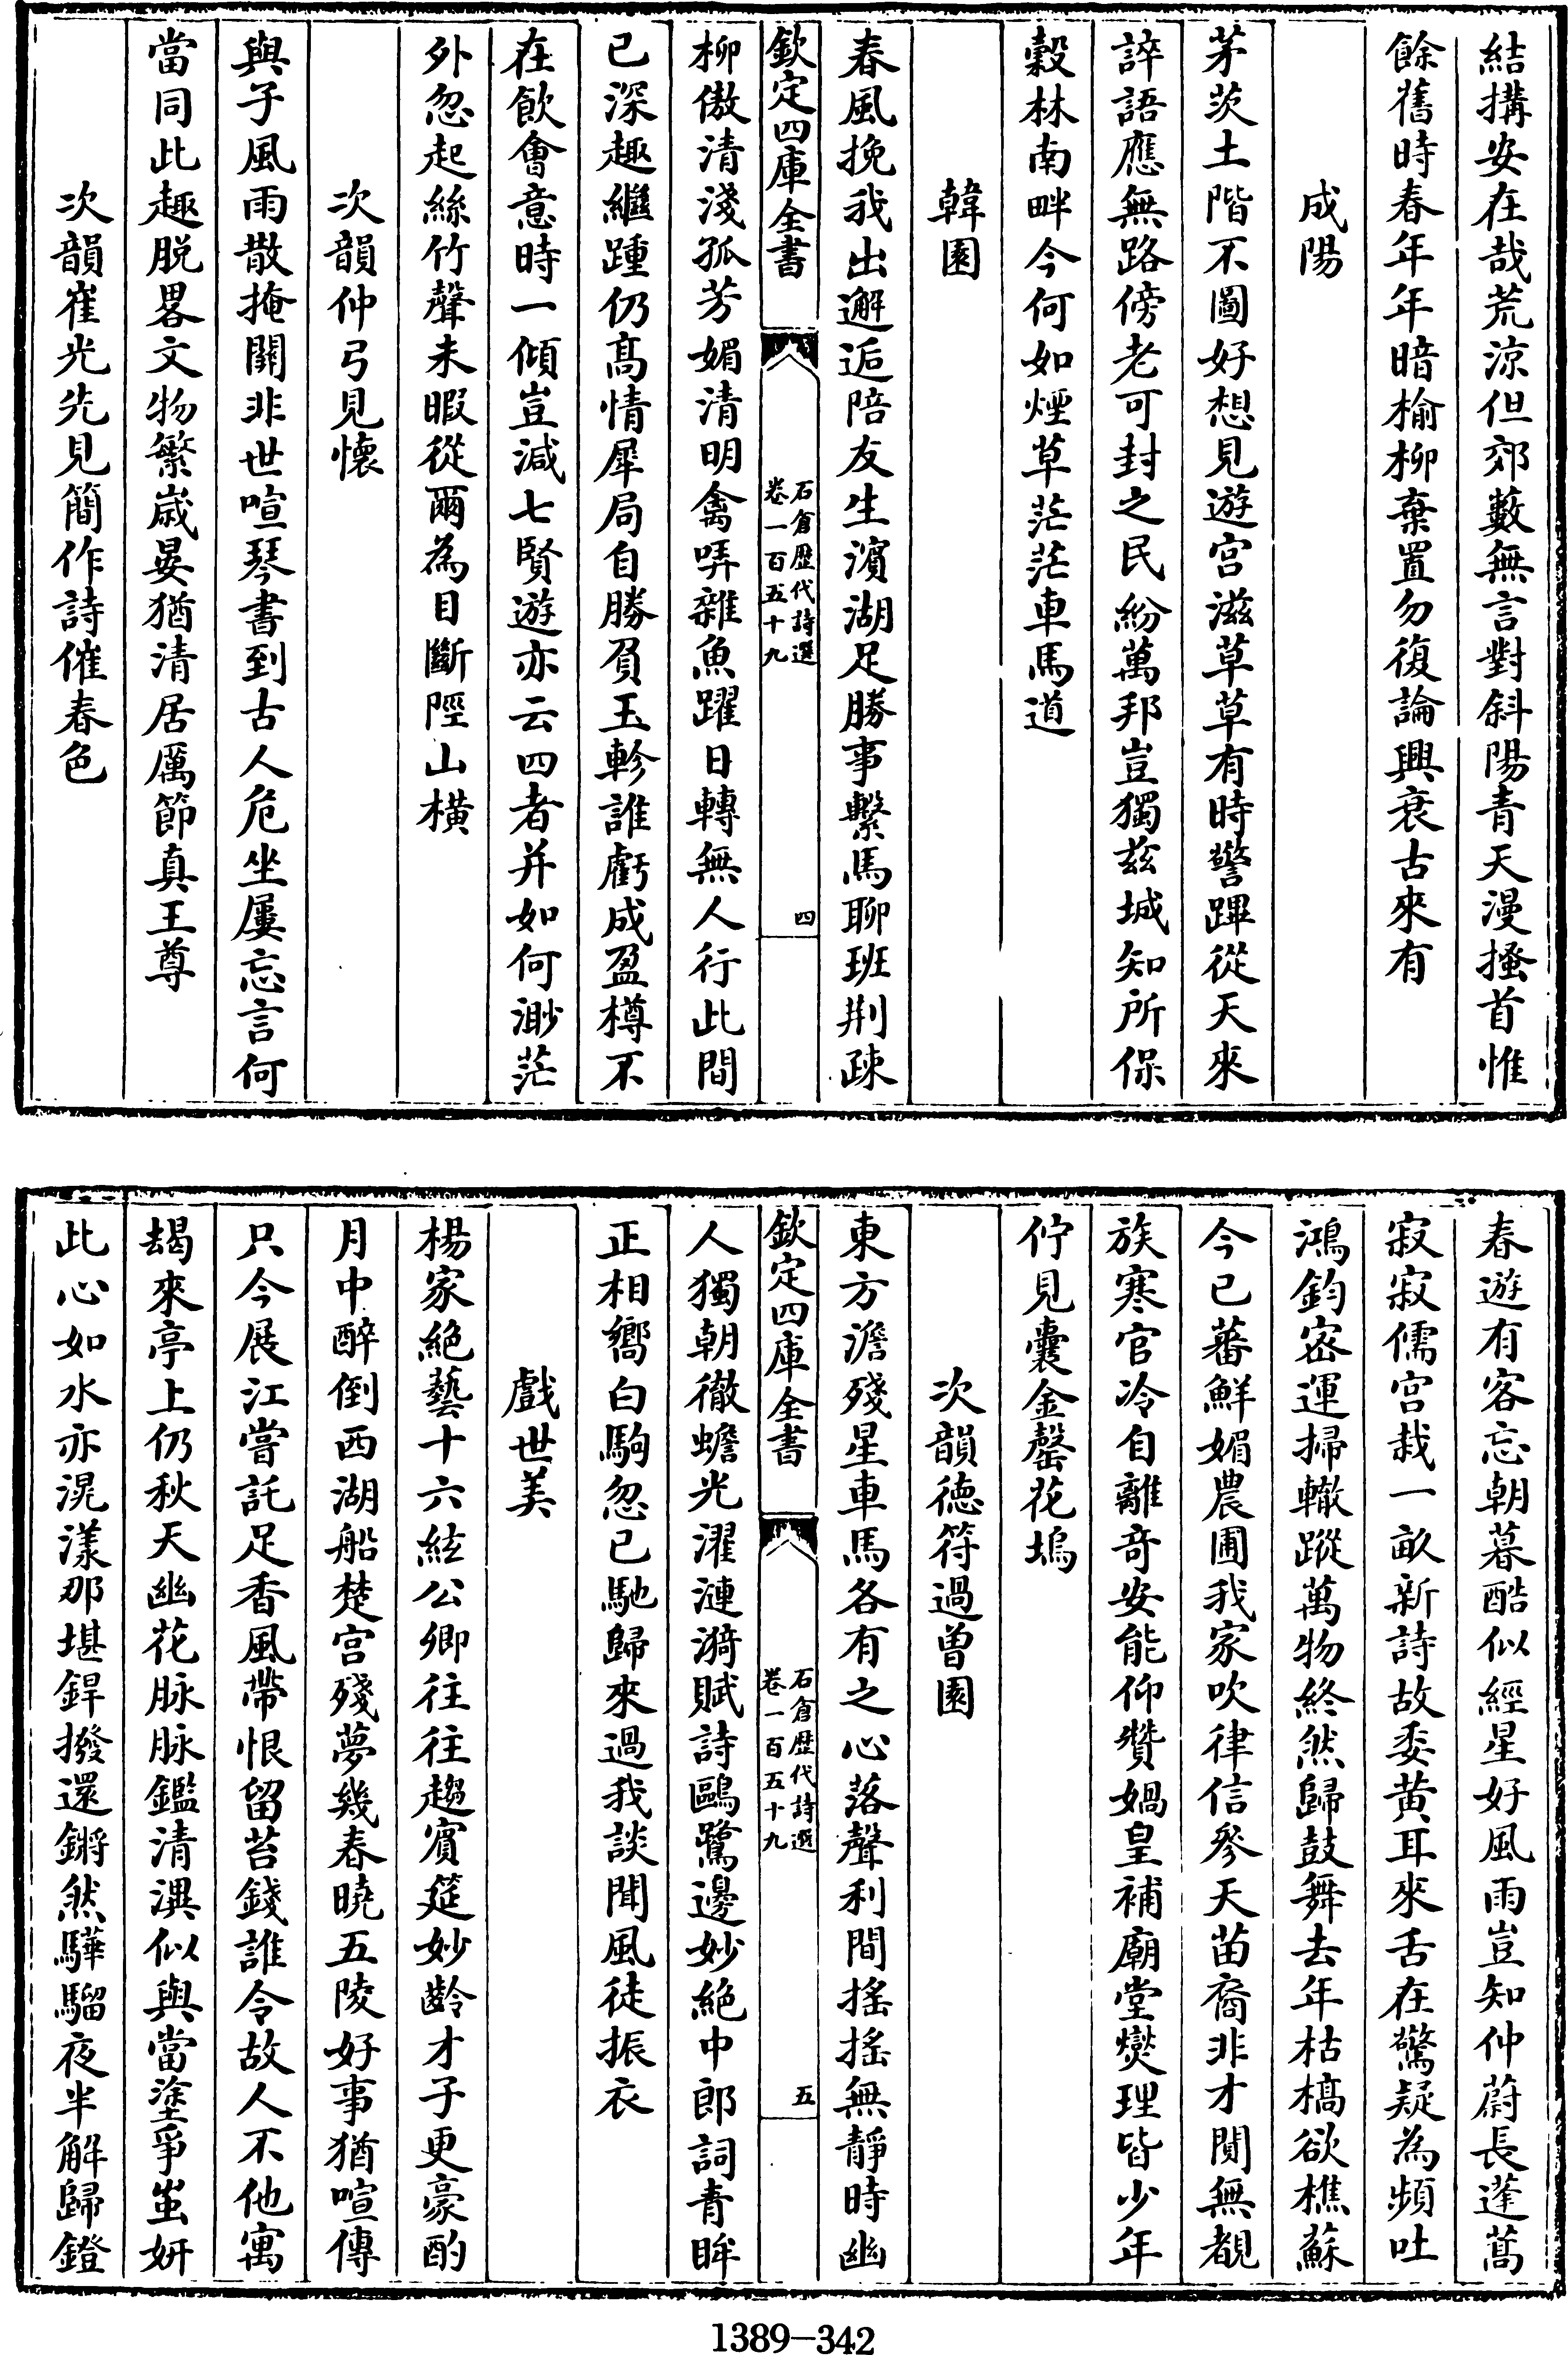 結搆安在哉荒涼但郊藪無言對斜陽青天漫搔首惟
餘舊時春年年暗榆柳棄置勿復論興衰古來有
成陽
茅茨土階不圖好想見遊宫滋草草有時警蹕從天來
誶語應無路傍老可封之民紛萬邦豈獨兹城知所保
穀林南畔今何如煙草茫茫車馬道
韓園
春風挽我出邂逅陪友生濱湖足勝事繫馬聊班荆疎
欽定四庫全書
石倉歴代詩選
卷一百五十九
四
柳傲清淺孤芳媚清明禽哢雜魚躍日轉無人行此間
已深趣繼踵仍髙情犀局自勝負玉軫誰虧成盈樽不
在飲會意時一傾豈減七賢遊亦云四者并如何渺茫
外忽起絲竹聲未暇從爾為目斷陘山横
次韻仲弓見懷
與子風雨散掩關非世喧琴書到古人危坐屢忘言何
當同此趣脱畧文物繁嵗晏猶清居厲節真王尊
次韻崔光先見簡作詩催春色
春遊有客忘朝暮酷似經星好風雨豈知仲蔚長蓬蒿
寂寂儒宫栽一畝新詩故委黄耳來舌在驚疑為頻吐
鴻鈞宻運掃轍蹤萬物終然歸鼓舞去年枯槁欲樵蘇
今已蕃鮮媚農圃我家吹律信參天苗裔非才閴無覩
族寒官冷自離竒安能仰贊媧皇補廟堂爕理皆少年
佇見囊金罄花塢
次韻徳符過曽園
東方澹殘星車馬各有之心落聲利間搖搖無靜時幽
欽定四庫全書
石倉歴代詩選
卷一百五十九
五
人獨朝徹蟾光濯漣漪賦詩鷗鷺邊妙絶中郎詞青眸
正相嚮白駒忽已馳歸來過我談聞風徒振衣
戲世美
楊家絶藝十六絃公卿往往趨賓筵妙齡才子更豪酌
月中醉倒西湖船楚宫殘夢幾春曉五陵好事猶喧傳
只今展江嘗託足香風帶恨留苔錢誰令故人不他寓
朅來亭上仍秋天幽花脉脉鑑清淇似與當塗爭蚩妍
此心如水亦滉漾那堪銲撥還鏘然驊騮夜半解歸鐙
1389-342